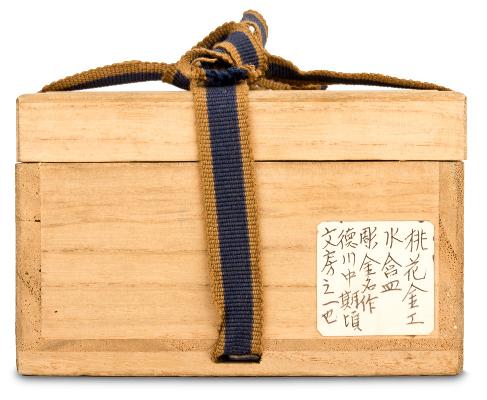 桃花金工
水盒皿
彫金名作
德川中期頃
文房之一也